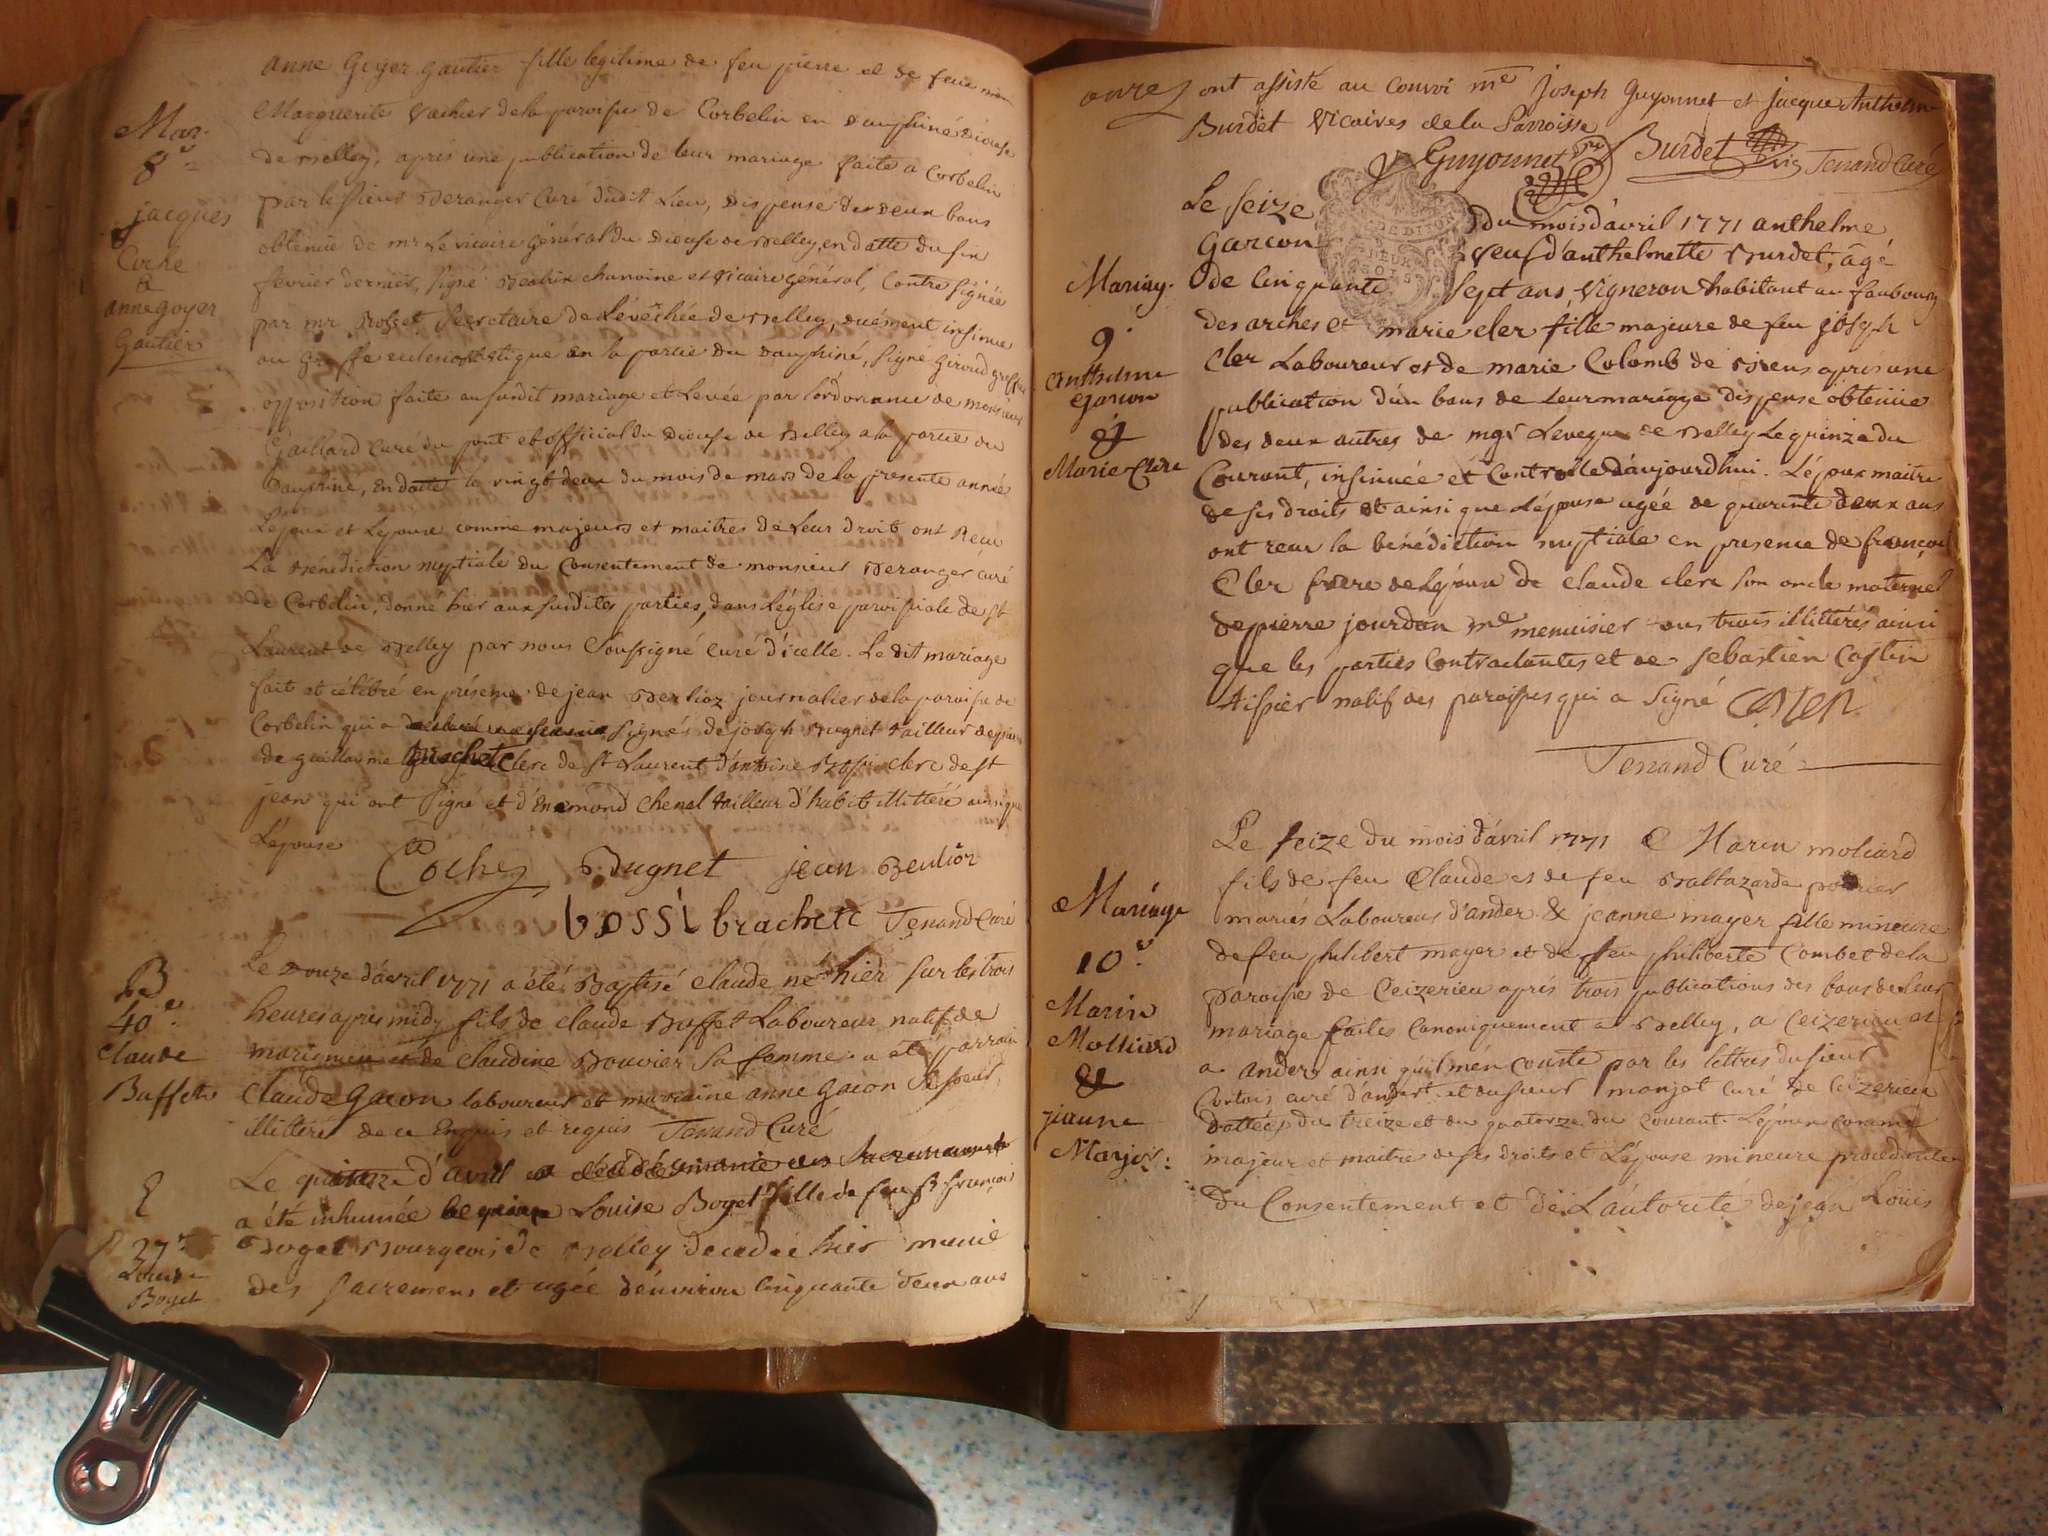 anne Goyer gautier fille legitime de feu pierre et de feue
Mar.
8e
jacques
Coche
&
anne goyer
Gautier
Marguerite Vachier de la paroisse de Corbelin en dauphiné diocese
de Belley, aprés une publication de leur mariage faite a Corbelin
par le sieur Beranger Curé dudit Lieu, dispense de deux bans
obtenue de mr Le vicaire général du diocese de Belley, en datte du
fevrier dernier, signé chanoine et vicaire général, Contre signée
par mr Rosset Secretaire de Lévêchée de Belley, duément insinué
au Greffe eclesiastique en la partie du dauphiné, signé giroud
opposition faite au susdit mariage et Levée par l'ordonnance de monsieur
Gailliard curé du pont et official du diocese de Belley a la partie du
Dauphiné, en datte le vingt deux du mois de mars de la presente année
L'epoux et L'epouse comme majeurs et maitres de Leur droits ont Recu
La Bénédiction nuptiale du Consentement de monsieur Beranger curé
de Corbelin, donné hier aux susdites parties, dans L'église paroissiale de st
Laurent de Belley par nous Soussigné curé d'icelle. Le dit mariage
fait et célébré en présence de jean Berlioz journalier de la paroisse de
Corbelin qui a signés de joseph Bugnet tailleur
de guillaume brachet Clerc de St Laurent d'antoine Bossi clerc de st
jean qui ont signé et d'Enemond Chenel tailleur d'habit illittéré ainsi que
L'épouse
Coche Bugnet jean Berlioz
bossi brachett Tenand Curé
B
40e
Claude
Buffet
Le douze d'avril 1771 a été Baptisé claude né hier sur les trois
heures aprés midy fils de claude Buffet Laboureur natif de
marignieu et de claudine Bouvier sa femme a été parrain
Claude gacon laboureur et marraine anne gacon sa soeur,
illittéré de ce Enquis et requis Tenand Curé
E
27e
Louise
Boget
Le quinze d'avril
a été inhumée Louise Boget fille de feu sr françois
Boget Bourgeois de Belley decedée hier munie
des sacremens et agée d'environ cinquante deux ans
ont assisté au Convoi me Joseph Guyonnet et jacque Anthelme
Burdet Vicaires de la Parroisse
Guyonnet Burdet Tenand Curé
Mariag.
9e
Anthelme
garcon
&
Marie Clere
Le seize du mois d'avril 1771 anthelme
Garcon veuf d'anthelmette Burdet, âgé
de Cinquante sept ans, Vigneron habitant au faubourg
des arches et marie cler fille majeure de feu joseph
Cler Laboureur et de marie Colomb de Brens apres une
publication d'un bans de leur mariage dispense obtenüe
des deux autres de mgr L'eveque de Belley Le quinze du
Courant, insinuée et Controlle d'aujourdhui. L'époux maitre
de ses droits et ainsi que L'épouse agée de quarante deux ans
ont recu la bénédiction nuptiale en presence de francois
Cler frere de L'époux de claude clerc son oncle maternel
de pierre jourdan me menuisier tous trois illittérés ainsi
que les parties Contractantes et de Sebastien Castin
tissier natif des paroisses qui a signé
Tenand Curé
Mariage
10e
Marin
Molliard
&
jeanne
Marjer.
Le seize du mois d'avril 1771 Marin moliard
fils de feu Claude et de feu Baltazarde
mariés Laboureurs d'ander & jeanne mayer fille mineure
de feu philibert mayer et de feu philiberte Combet de la
paroisse de Ceizerieu aprés trois publications des bans de Leur
mariage faites Canoniquement a Belley, a Ceizerieu et
a andert ainsi qu'il m'en couste par les lettres du sieur
Cortois curé d'andert et du sieur monjot curé de ceizerieu
dattées du treize et du quatorze du courant. L'époux comme
majeur et maitre de ses droits et L'épouse mineure procedante
du Consentement et de L'autorité de jean Louis